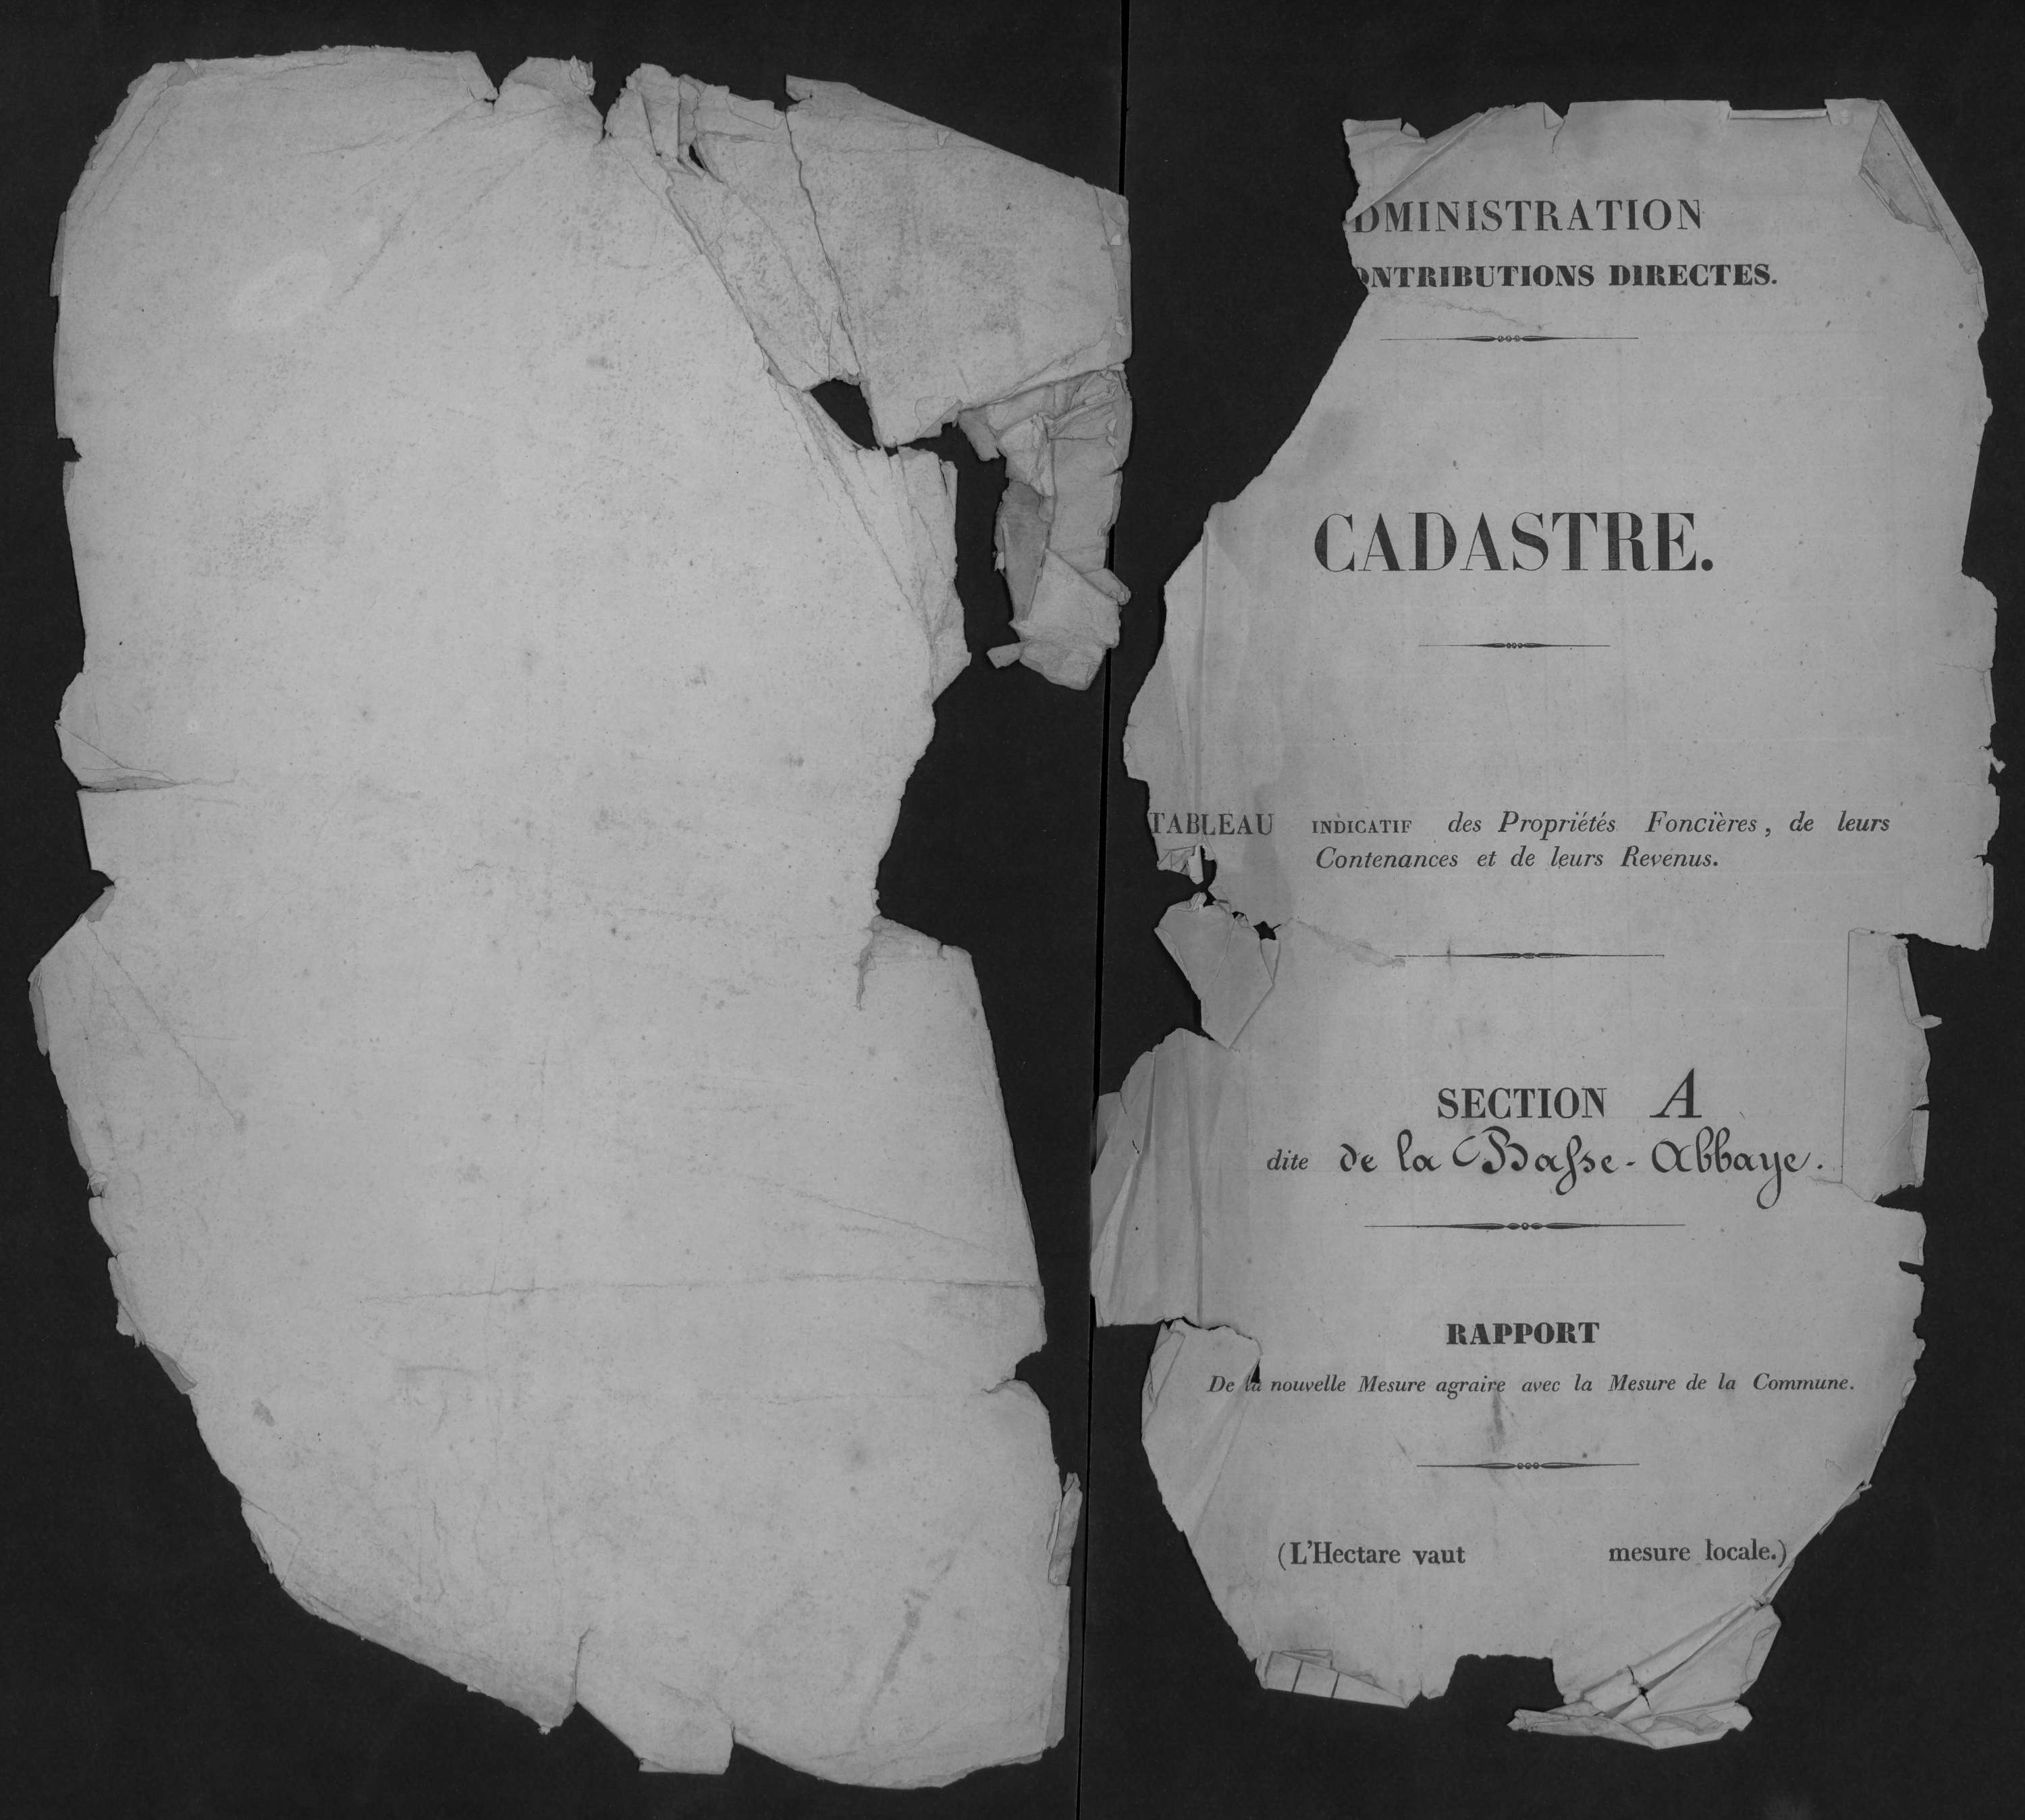 DMINISTRATION
ONTRIBUTIONS DIRECTES.
CADASTRE.
TABLEAU INDICATIF des Propriétés Foncières, de leurs
Contenances et de leurs Revenus.
SECTION A
dite de la Basse-Abbaye.
RAPPORT
De la nouvelle Mesure agraire avec la Mesure de la Commune.
(L'Hectare vaut mesure locale.)